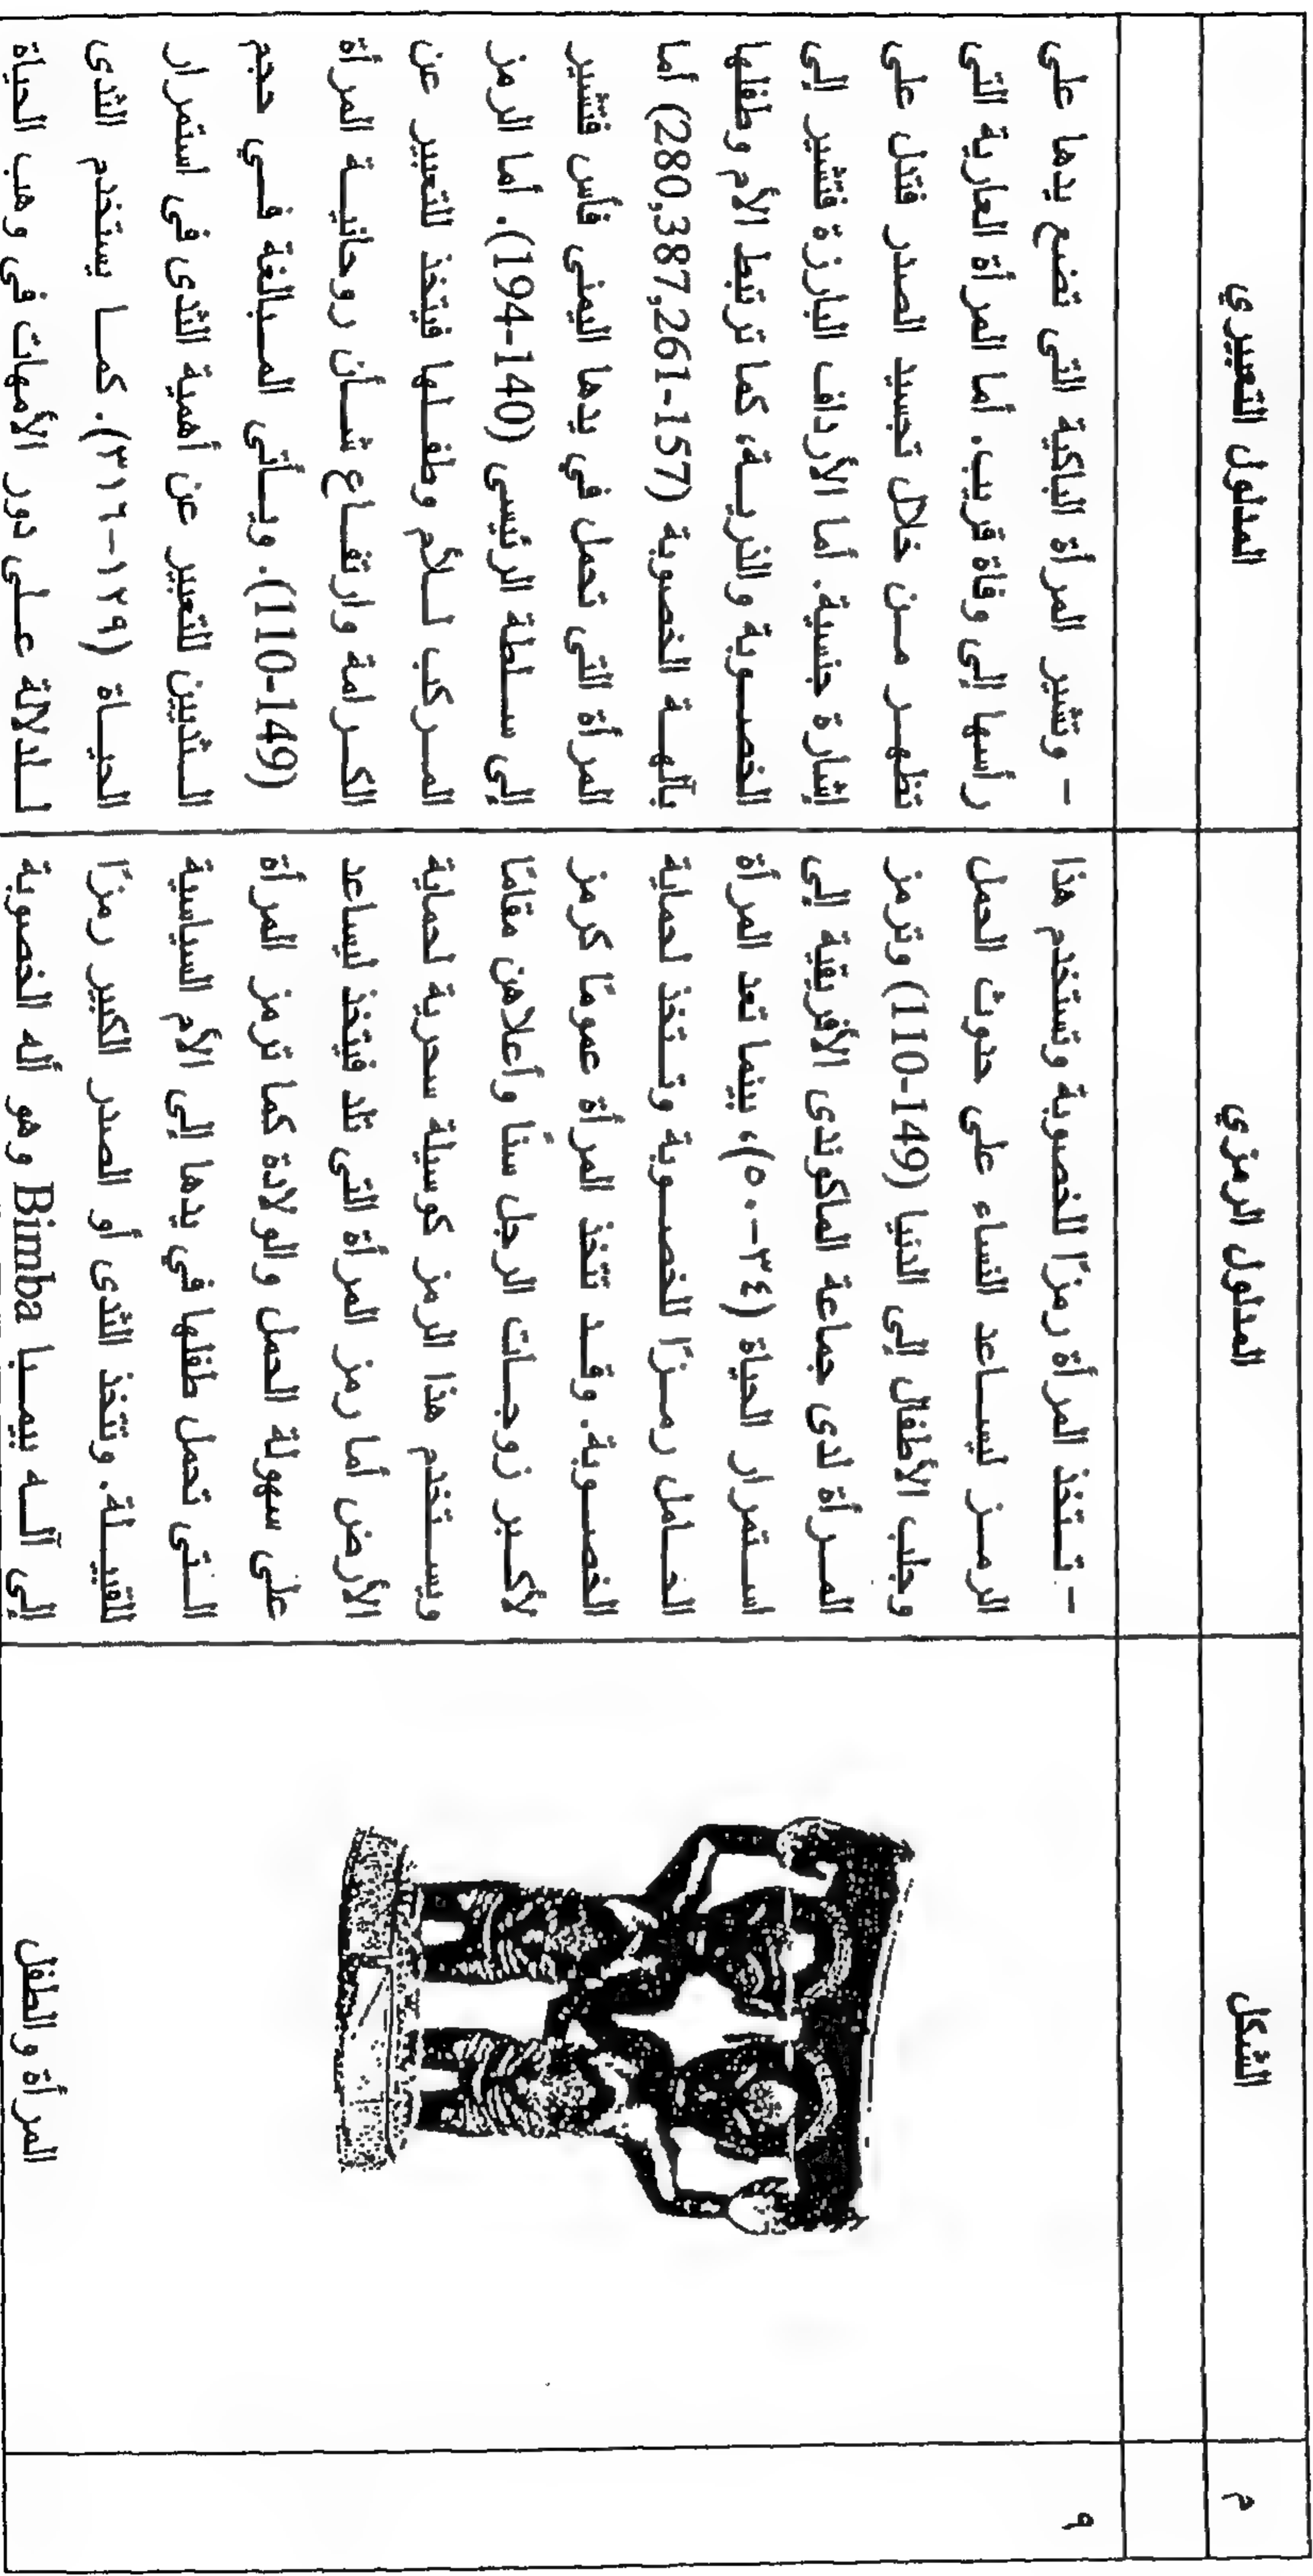 م
الشكل
المدلول الرمزي
المدلول التعبيري
٩
المرأة والطفل
- تتخذ المرأة رمزًا للخصوبة وتستخدم هذا
الرمز ليساعد النساء على حدوث الحمل
وجلب الأطفال إلى الدنيا (110-149) وترمز
المرأة لدى جماعة الماكوندى الأفريقية إلى
استمرار الحياة (٣٤-٥٠)، بينما تعد المرأة
الحامل رمزًا للخصوبة وتتخذ لحماية
الخصوبة. وقد تتخذ المرأة عمومًا كرمز
لأكبر زوجات الرجل سنًا وأعلاهن مقامًا
ويستخدم هذا الرمز كوسيلة سحرية لحماية
الأرض أما رمز المرأة التى تلد فيتخذ ليساعد
على سهولة الحمل والولادة كما ترمز المرأة
التى تحمل طفلها في يدها إلى الأم السياسية
للقبيلة. وتتخذ الثدى أو الصدر الكبير رمزًا
إلى آله بيمبا Bimba وهو أله الخصوبة
- وتشير المرأة الباكية التى تضع يدها على
رأسها إلى وفاة قريب. أما المرأة العارية التى
تظهر من خلال تجسيد الصدر فتدل على
إشارة جنسية. أما الأرداف البارزة فتشير إلى
الخصوبة والذرية، كما ترتبط الأم وطفلها
بآلهة الخصوبة (157-261,387,280) أما
المرأة التى تحمل في يدها اليمنى فأس فتشير
إلى سلطة الرئيسى (140-194). أما الرمز
المركب للأم وطفلها فيتخذ للتعبير عن
الكرامة وارتفاع شأن روحانية المرأة
(110-149). ويأتى المبالغة في حجم
الثديين للتعبير عن أهمية الثدى فى استمرار
الحياة (١٢٩-٣١٦). كما يستخدم الثدى
للدلالة على دور الأمهات فى وهب الحياة